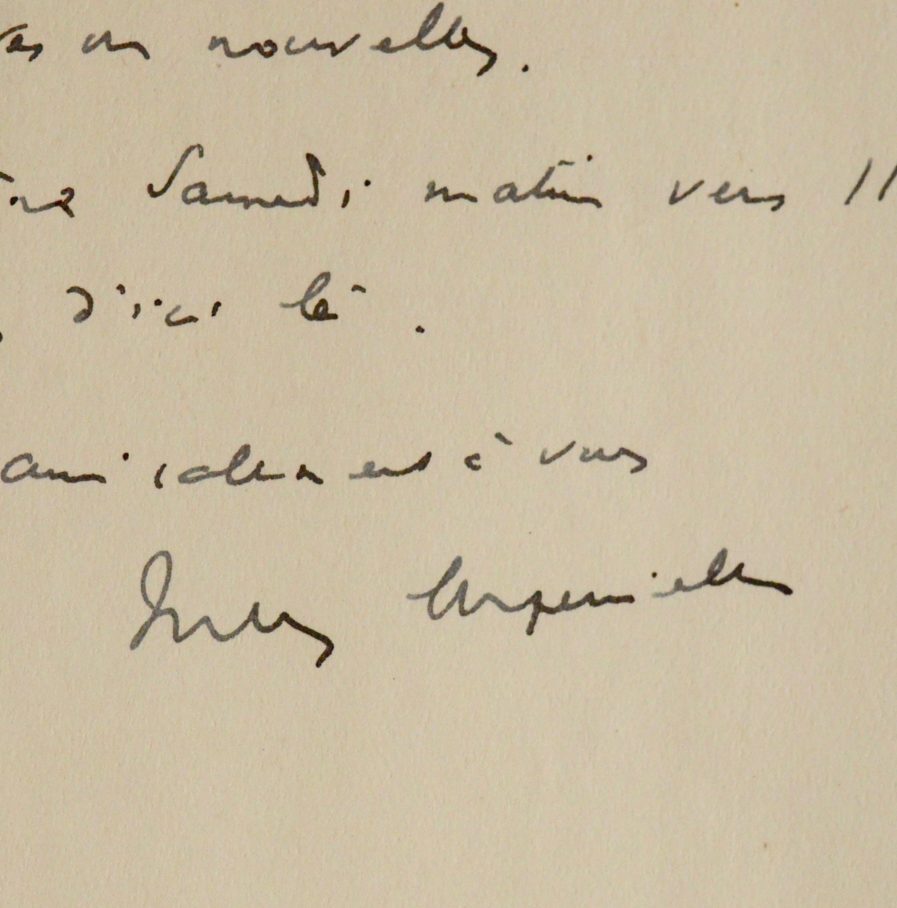 nouvelles.
Samedi matin vers 11
d'ici là.
amicalement à vous
Jules Supervielle